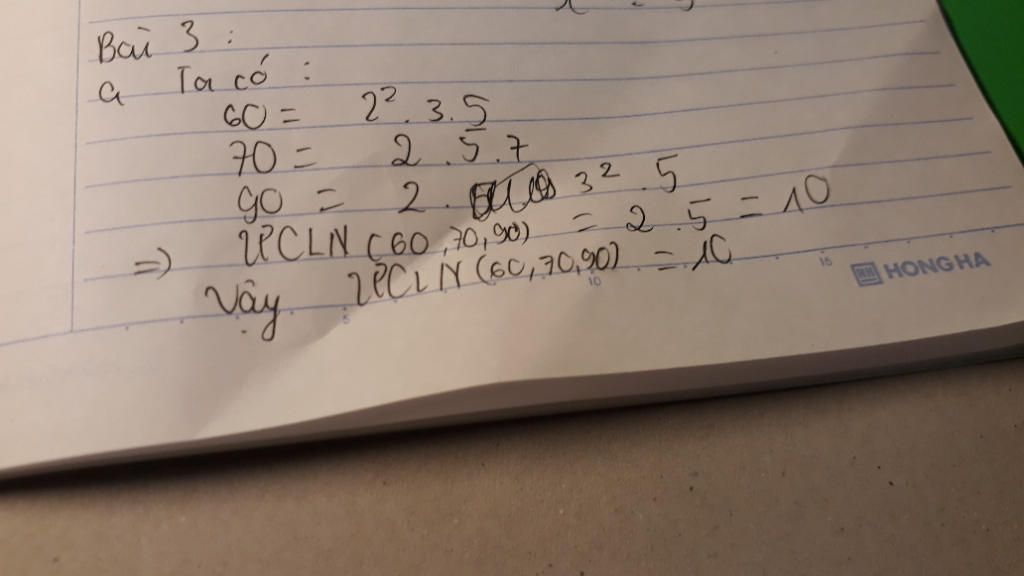 Bài 3 :
a Ta có :
60 = 2². 3. 5
70 = 2 . 5 . 7
90 = 2 . 3² . 5
=> ƯCLN (60, 70, 90) = 2 . 5 = 10
Vậy ƯCLN (60, 70, 90) = 10
5 10 15
HONG HA